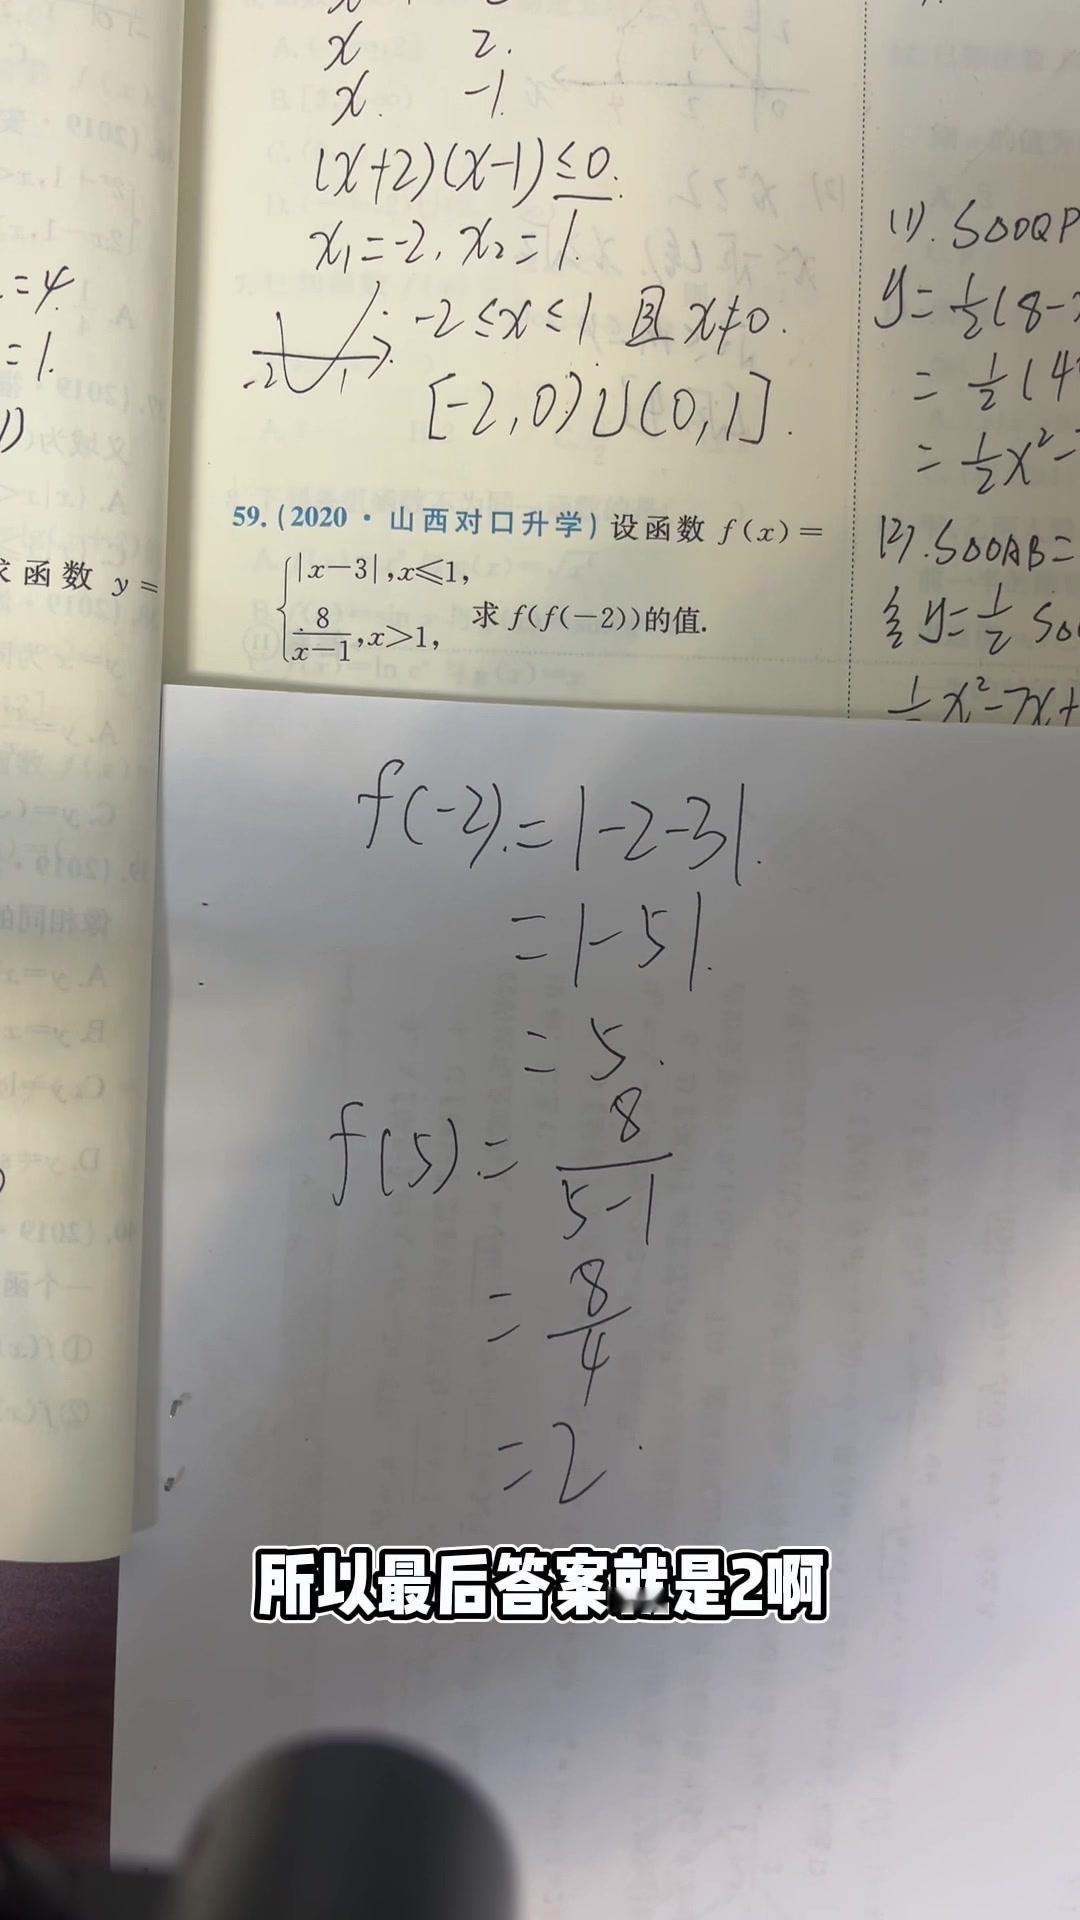 x 2.
x -1.
(x+2)(x-1)≤0.
x₁=-2, x₂=1.
-2≤x≤1 且 x≠0.
-2 1
[-2,0)∪(0,1].
=4.
=1.
求函数 y=
59.(2020·山西对口升学)设函数 f(x)=
|x-3|,x⩽1,
8/(x-1),x>1, 求 f(f(-2))的值.
(1). S△OQP
y=1/2(8-x
=1/2(4
=1/2x²-
(2). S△OAB=
y=1/2 S△O
x²-7x+
f(-2).=|-2-3|.
=|-5|.
=5.
f(5)=8/(5-1)
=8/4
=2.
所以最后答案就是2啊